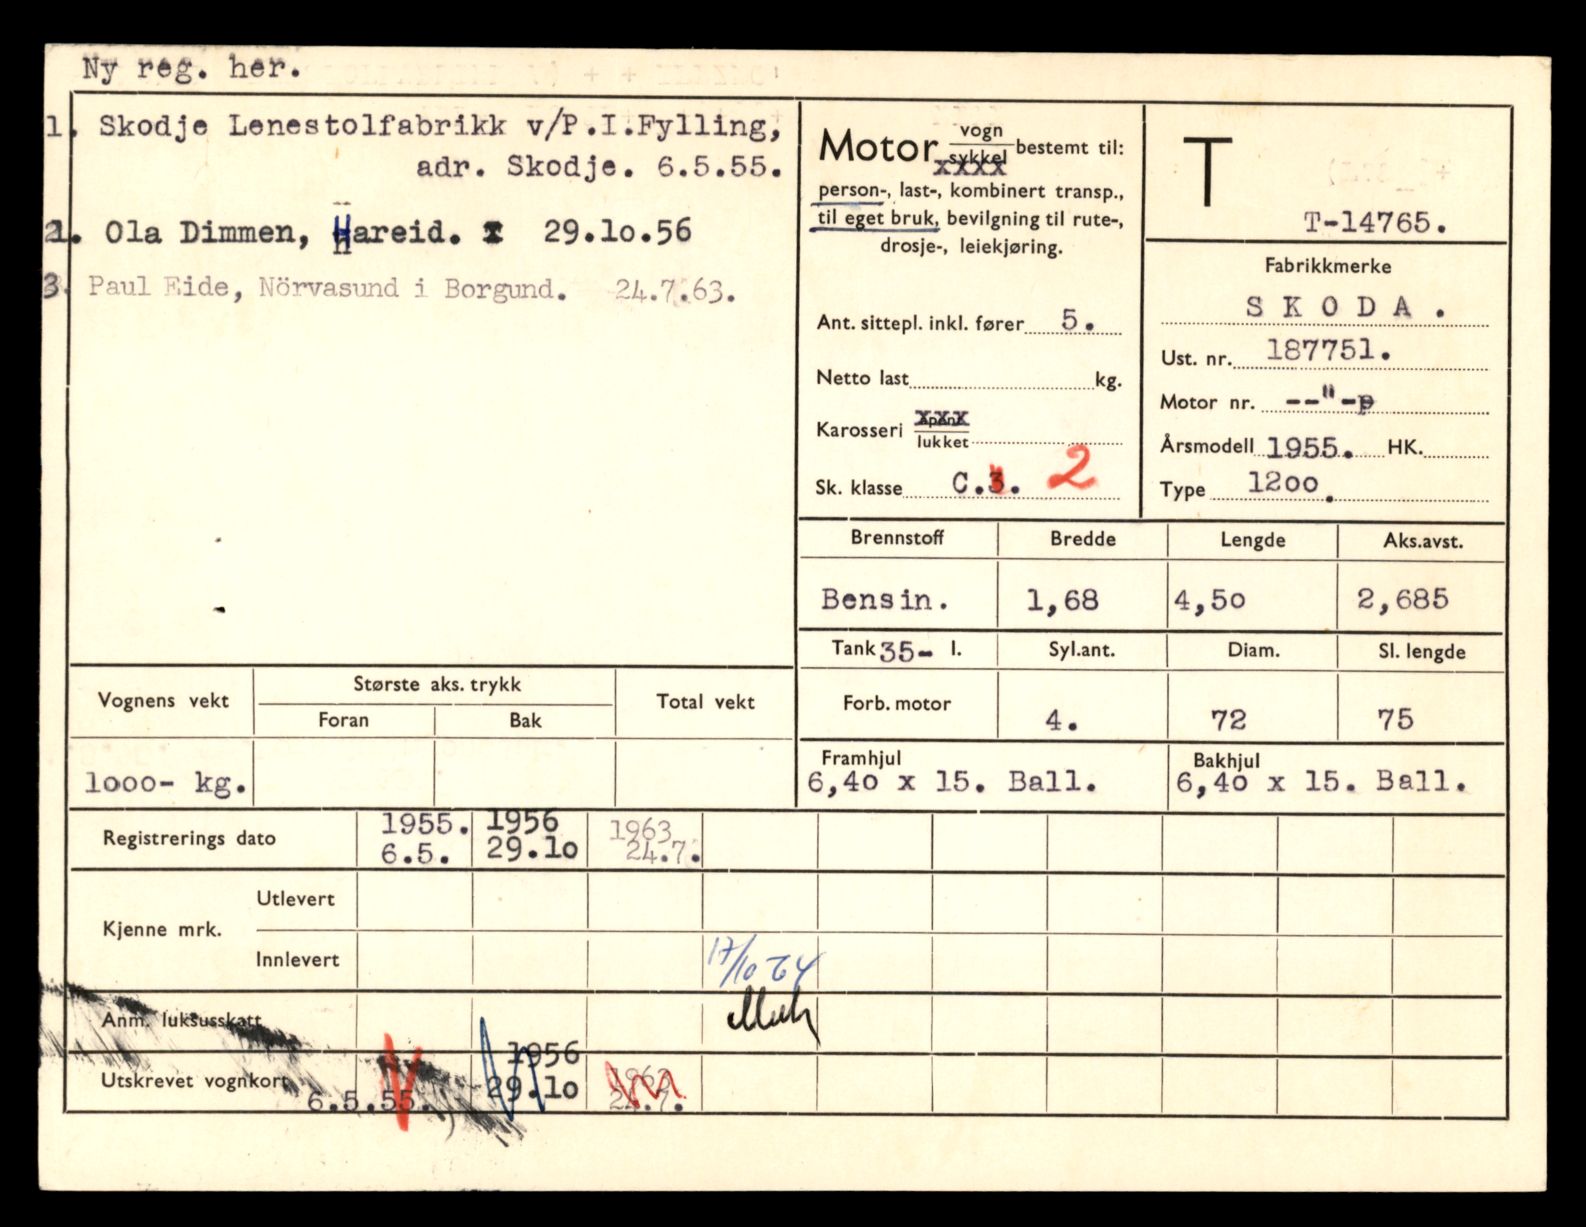 Ny reg. her.
1. Skodje Lenestolfabrikk v/P.I.Fylling,
adr. Skodje. 6.5.55.
2. Ola Dimmen, Hareid. 29.10.56
3. Paul Eide, Nörvasund i Borgund. 24.7.63.
Motor vogn sykkel bestemt til:
person-, last-, kombinert transp.,
til eget bruk, bevilgning til rute-,
drosje-, leiekjøring.
Ant. sittepl. inkl. fører 5.
Netto last kg.
Karosseri åpent lukket
Sk. klasse C.3. 2
T
T-14765.
Fabrikkmerke
SKODA.
Ust. nr. 187751.
Motor nr. --"-
Årsmodell 1955. HK.
Type 1200.
Brennstoff Bredde Lengde Aks.avst.
Bensin. 1,68 4,50 2,685
Tank 35- l. Syl.ant. Diam. Sl. lengde
Forb. motor 4. 72 75
Framhjul Bakhjul
6,40 x 15. Ball. 6,40 x 15. Ball.
Vognens vekt Største aks. trykk Total vekt
Foran Bak
1000- kg.
Registrerings dato 1955. 1956 1963
6.5. 29.10 24.7.
Kjenne mrk. Utlevert
Innlevert 17/10 64
Anm. luksusskatt
Utskrevet vognkort 6.5.55. 1956 1963
29.10 24.7.